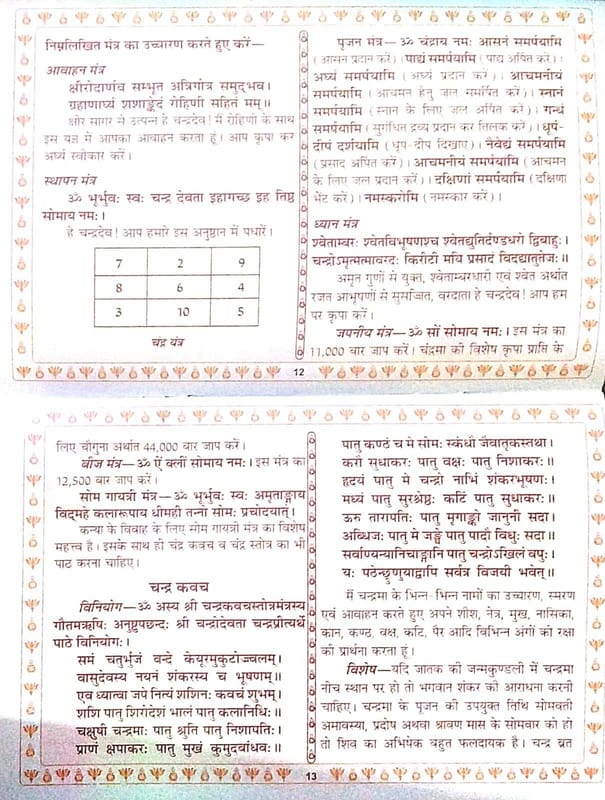 निम्नलिखित मंत्र का उच्चारण करते हुए करें—
आवाहन मंत्र
क्षीरोदार्णव सम्भूत अत्रिगोत्र समुद्भव।
ग्रहाणार्घ्यं शशाङ्केदं रोहिणी सहित मम्॥
क्षीर सागर से उत्पन्न हे चन्द्रदेव! मैं रोहिणी के साथ
इस यज्ञ में आपका आवाहन करता हूं। आप कृपा कर
अर्घ्य स्वीकार करें।
स्थापन मंत्र
ॐ भूर्भुवः स्वः चन्द्र देवता इहागच्छ इह तिष्ठ
सोमाय नमः।
हे चन्द्रदेव! आप हमारे इस अनुष्ठान में पधारें।
7 2 9
8 6 4
3 10 5
चंद्र यंत्र
पूजन मंत्र—ॐ चंद्राय नमः आसनं समर्पयामि
(आसन प्रदान करें)। पाद्यं समर्पयामि (पाद्य अर्पित करें)।
अर्घ्यं समर्पयामि (अर्घ्य प्रदान करें)। आचमनीयं
समर्पयामि (आचमन हेतु जल समर्पित करें)। स्नानं
समर्पयामि (स्नान के लिए जल अर्पित करें)। गन्धं
समर्पयामि (सुगंधित द्रव्य प्रदान कर तिलक करें)। धूपं-
दीपं दर्शयामि (धूप-दीप दिखाएं)। नैवेद्यं समर्पयामि
(प्रसाद अर्पित करें)। आचमनीयं समर्पयामि (आचमन
के लिए जल प्रदान करें)। दक्षिणां समर्पयामि (दक्षिणा
भेंट करें)। नमस्करोमि (नमस्कार करें)।
ध्यान मंत्र
श्वेताम्बरः श्वेतविभूषणश्च श्वेतद्युतिर्दण्डधरो द्विबाहुः।
चन्द्रोऽमृत्मत्मावरदः किरीटी मयि प्रसादं विदद्यातुतेजः॥
अमृत गुणों से युक्त, श्वेताम्बरधारी एवं श्वेत अर्थात
रजत आभूषणों से सुसज्जित, वरदाता हे चन्द्रदेव! आप हम
पर कृपा करें।
जपनीय मंत्र—ॐ सों सोमाय नमः। इस मंत्र का
11,000 बार जाप करें। चंद्रमा की विशेष कृपा प्राप्ति के
12
लिए चौगुना अर्थात 44,000 बार जाप करें।
बीज मंत्र—ॐ ऐं क्लीं सोमाय नमः। इस मंत्र का
12,500 बार जाप करें।
सोम गायत्री मंत्र—ॐ भूर्भुवः स्वः अमृताङ्गाय
विद्महे कलारूपाय धीमही तन्नो सोमः प्रचोदयात्।
कन्या के विवाह के लिए सोम गायत्री मंत्र का विशेष
महत्त्व है। इसके साथ ही चंद्र कवच व चंद्र स्तोत्र का भी
पाठ करना चाहिए।
चन्द्र कवच
विनियोग—ॐ अस्य श्री चन्द्रकवचस्तोत्रमंत्रस्य
गौतमऋषिः अनुष्टुपछन्दः श्री चन्द्रोदेवता चन्द्रप्रीत्यर्थं
पाठे विनियोगः।
समं चतुर्भुजं वन्दे केयूरमुकुटोज्वलम्।
वासुदेवस्य नयनं शंकरस्य च भूषणम्॥
एवं ध्यात्वा जपे नित्यं शशिनः कवचं शुभम्।
शशि पातु शिरोदेशं भालं पातु कलानिधिः॥
चक्षुषी चन्द्रमाः पातु श्रुति पातु निशापतिः।
प्राणं क्षपाकरः पातु मुखं कुमुदबांधवः॥
पातु कण्ठं च मे सोमः स्कंधौ जैवातृकस्तथा।
करौ सुधाकरः पातु वक्षः पातु निशाकरः॥
हृदयं पातु मे चन्द्रो नाभिं शंकरभूषणः।
मध्यं पातु सुरश्रेष्ठः कटिं पातु सुधाकरः॥
ऊरु तारापतिः पातु मृगाङ्को जानुनी सदा।
अब्धिजः पातु मे जङ्घे पातु पादौ विधुः सदा॥
सर्वाण्यन्यानिचाङ्गानि पातु चन्द्रोऽखिलं वपुः।
यः पठेच्छृणुयाद्वापि सर्वत्र विजयी भवेत्॥
मैं चन्द्रमा के भिन्न-भिन्न नामों का उच्चारण, स्मरण
एवं आवाहन करते हुए अपने शीश, नेत्र, मुख, नासिका,
कान, कण्ठ, वक्ष, कटि, पैर आदि विभिन्न अंगों की रक्षा
की प्रार्थना करता हूं।
विशेष—यदि जातक की जन्मकुण्डली में चन्द्रमा
नीच स्थान पर हो तो भगवान शंकर की आराधना करनी
चाहिए। चन्द्रमा के पूजन की उपयुक्त तिथि सोमवती
अमावस्या, प्रदोष अथवा श्रावण मास के सोमवार को हो
तो शिव का अभिषेक बहुत फलदायक है। चन्द्र व्रत
13